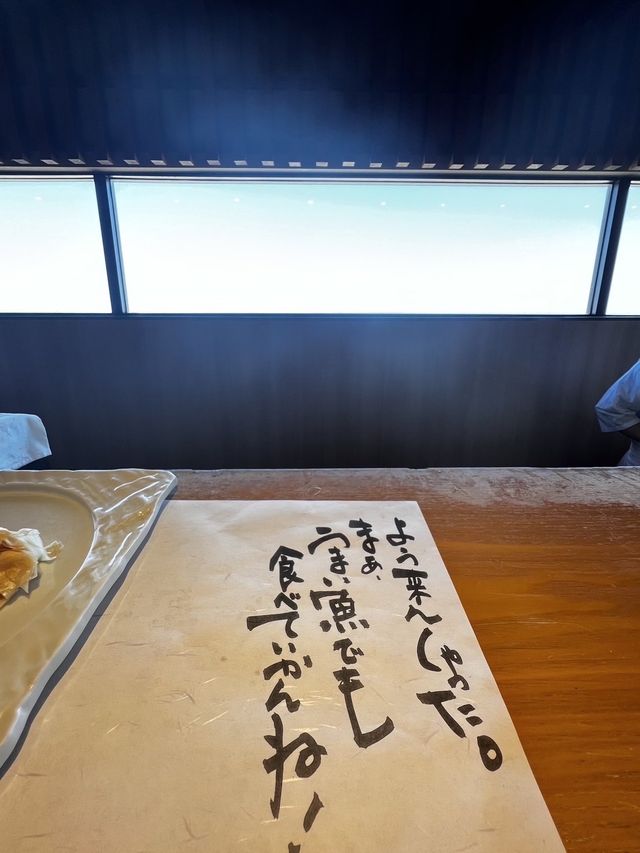 よう来んしゃった。
まぁ、
うまい魚でも
食べていかんね!